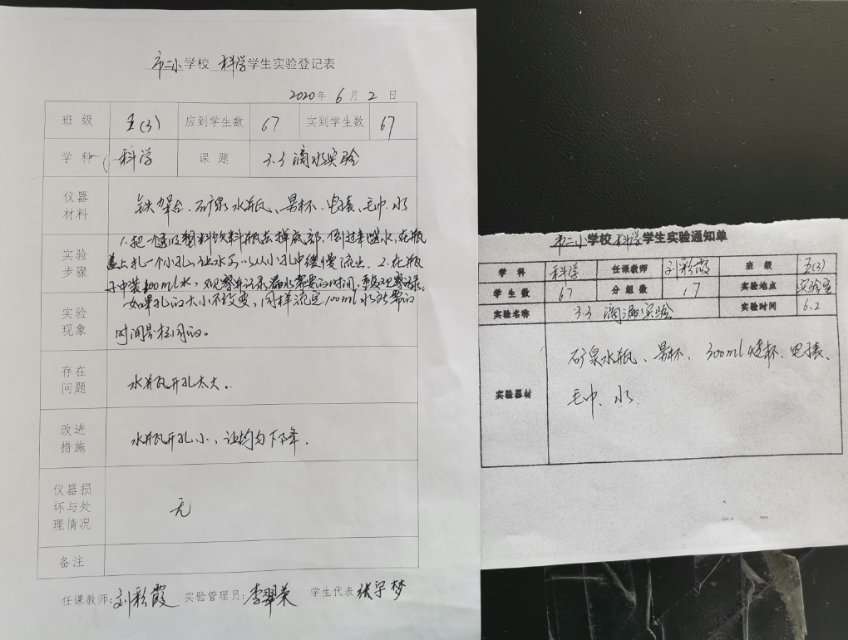 市二小学校 科学学生实验登记表
2020年 6月 2日
班级 五(3) 应到学生数 67 实到学生数 67
学科 科学 课题 3.3 滴水实验
仪器材料 铁架台、矿泉水瓶、量杯、电子表、毛巾、水
实验步骤
1.把一个透明塑料饮料瓶去掉底部,倒过来盛水,在瓶
盖上扎一个小孔,让水可以从小孔中缓慢流出 2.在瓶
子中装400ml水,观察并记录漏水需要的时间,
实验现象
如果孔的大小不改变,同样流完100ml水所需的
时间是相同的。
存在问题 水瓶开孔太大。
改进措施 水瓶开孔小,让均匀下降。
仪器损坏与处理情况 无
备注
任课教师:刘彩霞 实验管理员:李翠荣 学生代表:张宇梦
市二小学校科学学生实验通知单
学科 科学 任课教师 刘彩霞 班级 五(3)
学生数 67 分组数 17 实验地点 实验室
实验名称 3.3 滴漏实验 实验时间 6.2
实验器材
矿泉水瓶、量杯、300ml烧杯、电子表、
毛巾、水